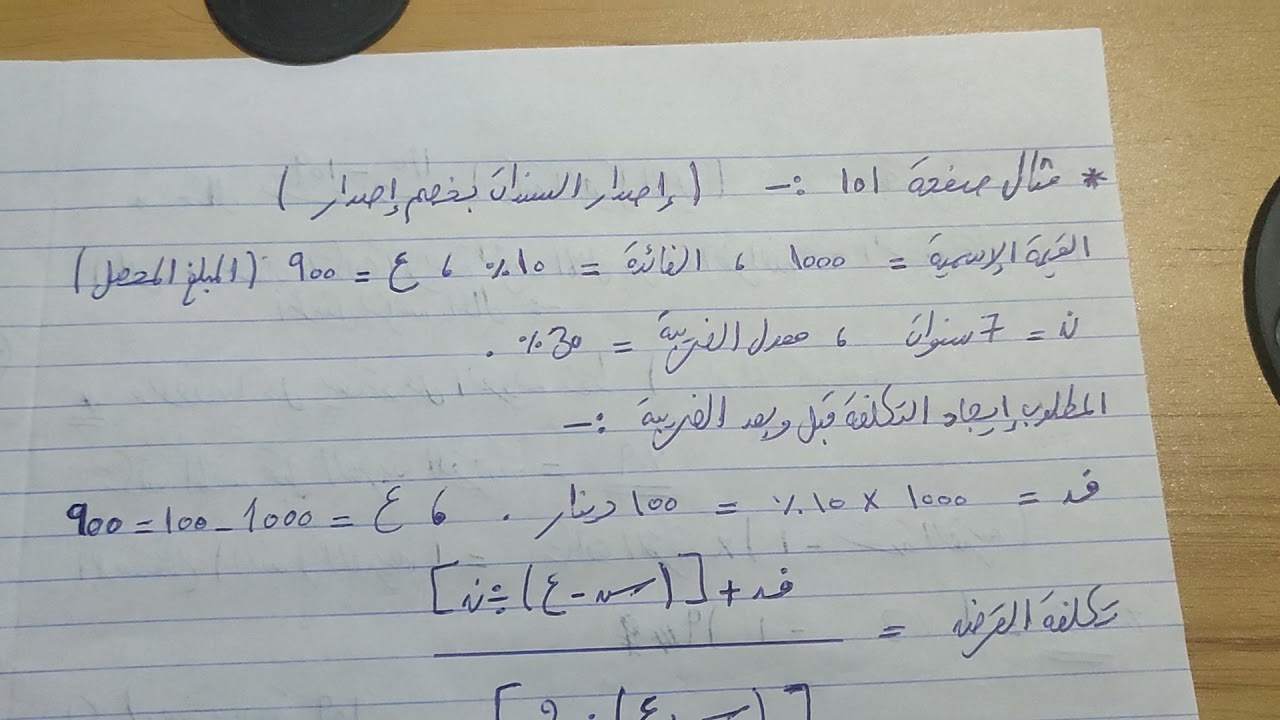 * مثال صفحة 101 :- (إصدار السندات بخصم إصدار)
القيمة الإسمية = 1000 ، الفائدة = 10% ، ع = 900 (المبلغ المحصل)
ن = 7 سنوات ، معدل الضريبة = 30% .
المطلوب إيجاد التكلفة قبل وبعد الضريبة :-
فد = 1000 × 10% = 100 دينار . ، ع = 1000 - 100 = 900
فد + [(س - ع) ÷ ن]
تكلفة القرض =
[(س + ع) ÷ 2]